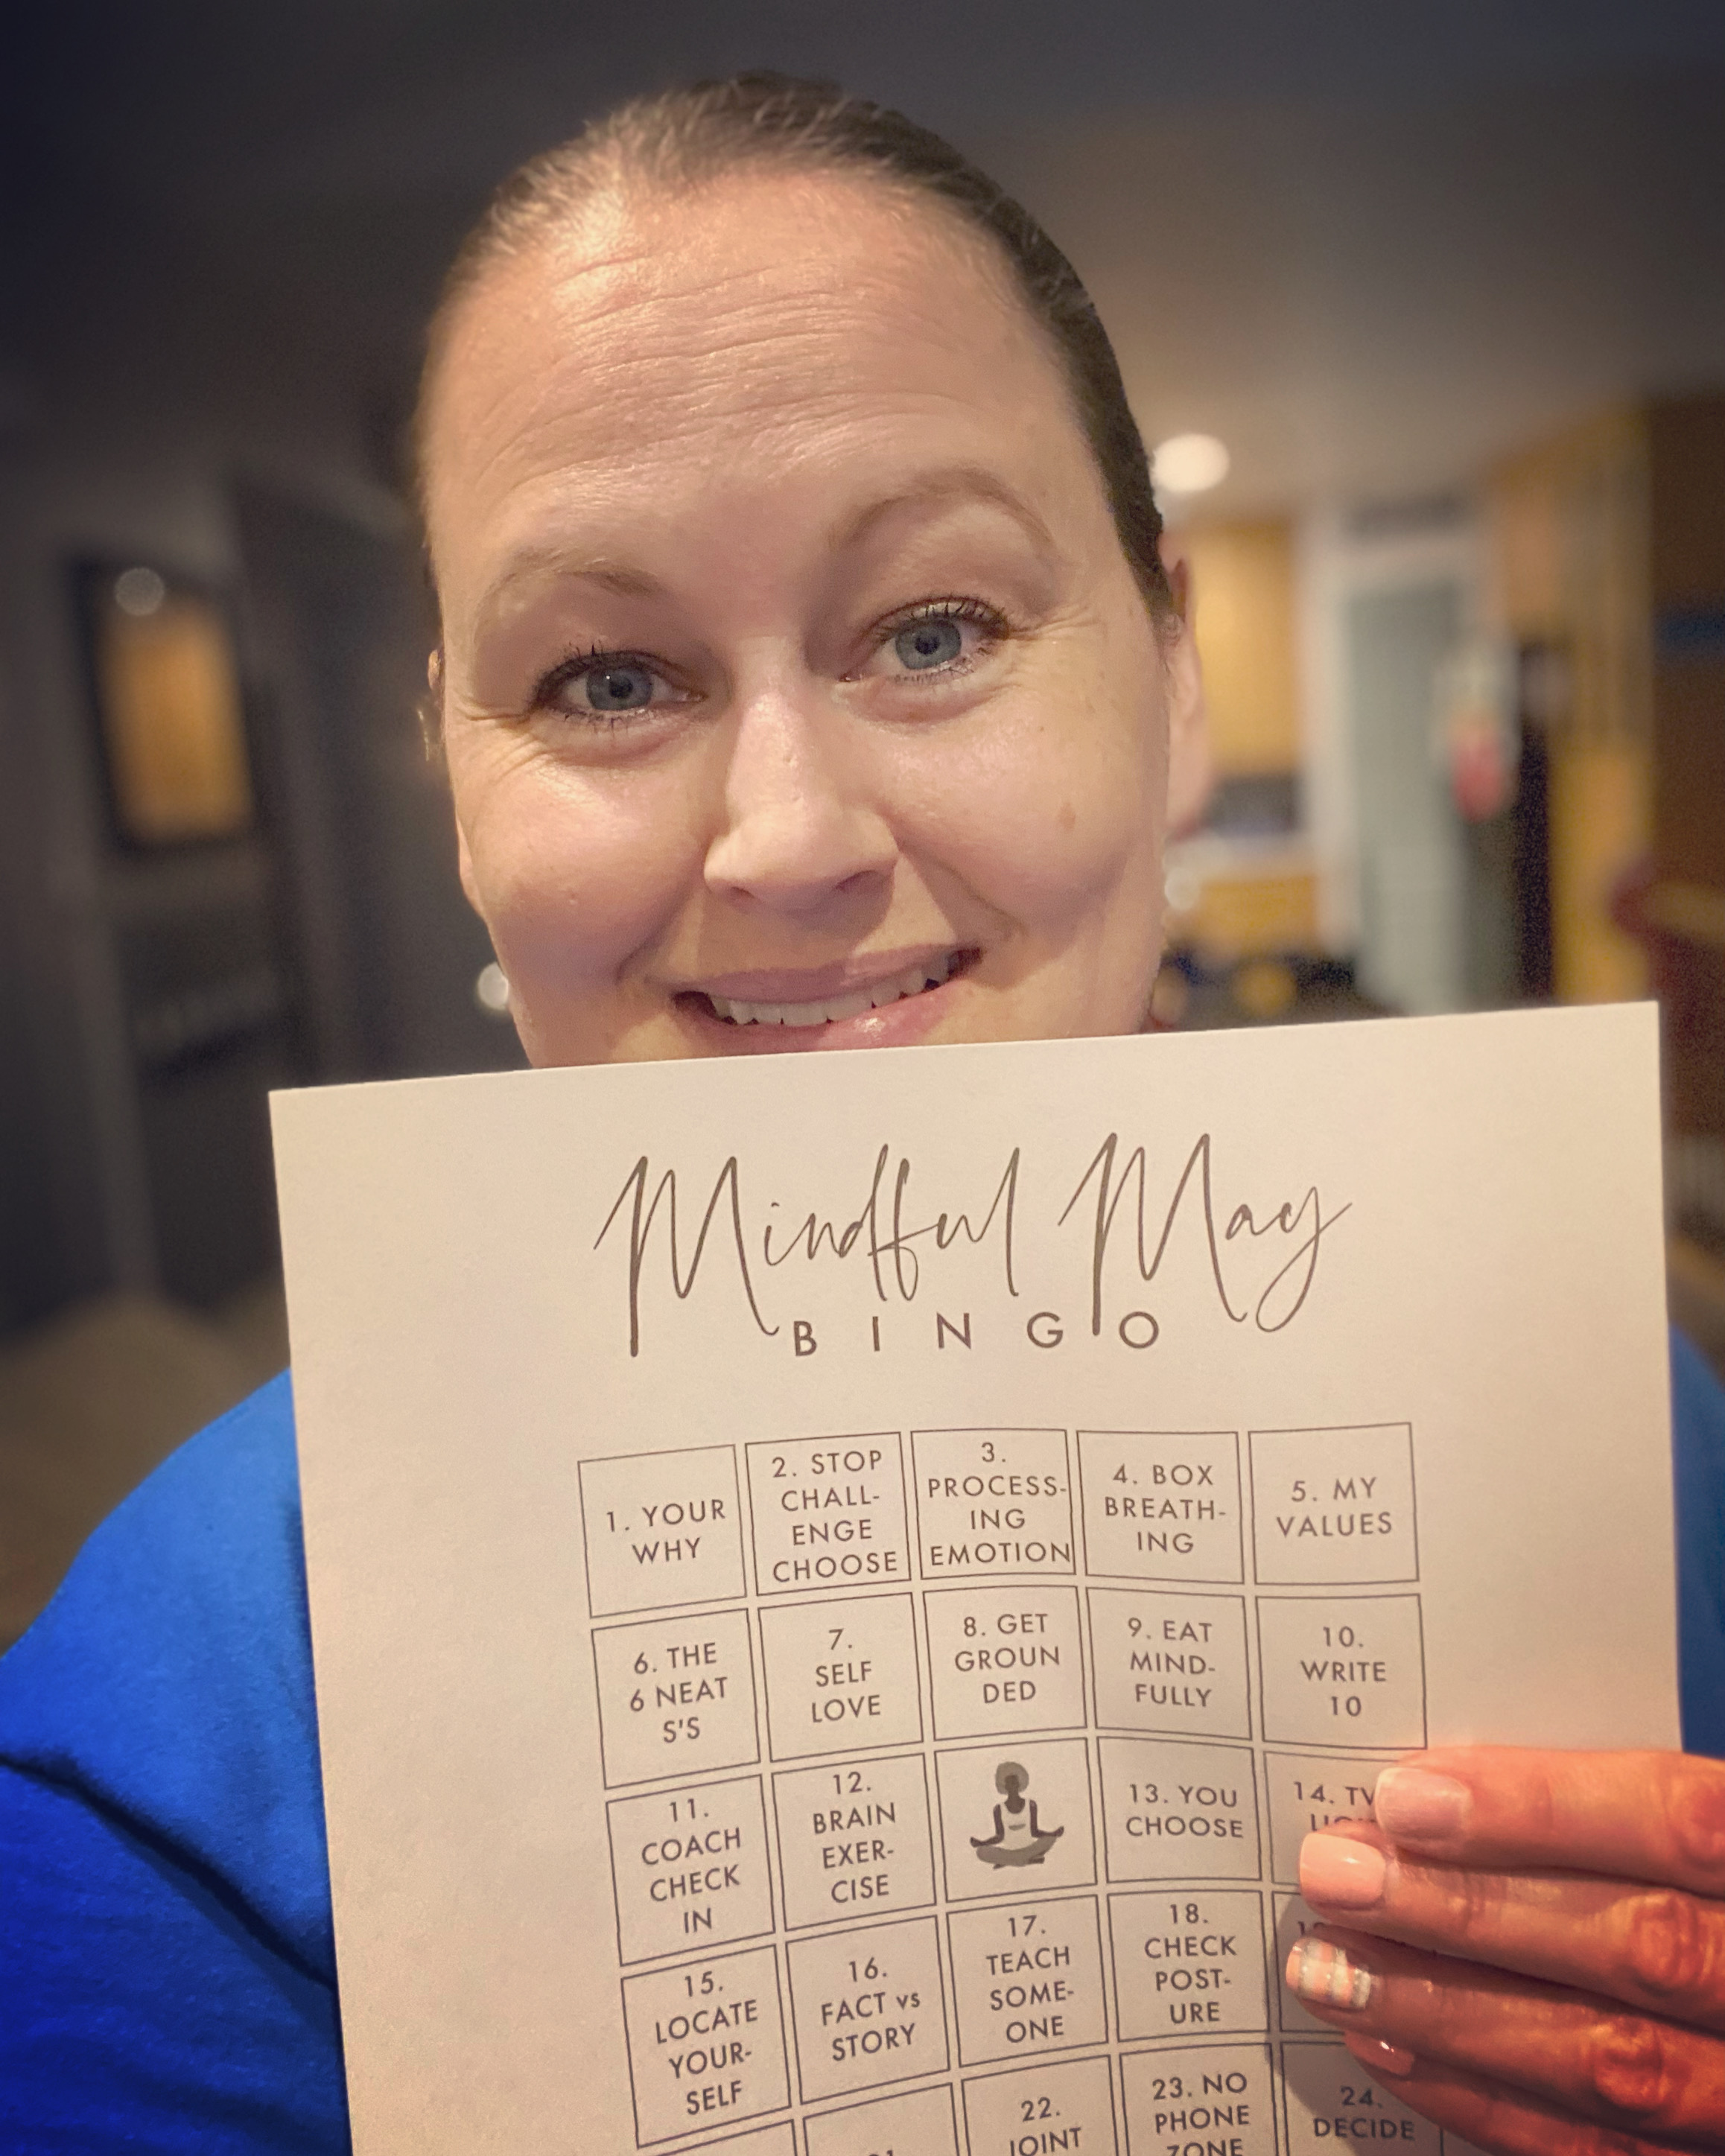 Mindful May
BINGO
1. YOUR
WHY
2. STOP
CHALL-
ENGE
CHOOSE
3.
PROCESS-
ING
EMOTION
4. BOX
BREATH-
ING
5. MY
VALUES
6. THE
6 NEAT
S'S
7.
SELF
LOVE
8. GET
GROUN
DED
9. EAT
MIND-
FULLY
10.
WRITE
10
11.
COACH
CHECK
IN
12.
BRAIN
EXER-
CISE
13. YOU
CHOOSE
14.
15.
LOCATE
YOUR-
SELF
16.
FACT vs
STORY
17.
TEACH
SOME-
ONE
18.
CHECK
POST-
URE
22.
JOINT
23. NO
PHONE
ZONE
24.
DECIDE